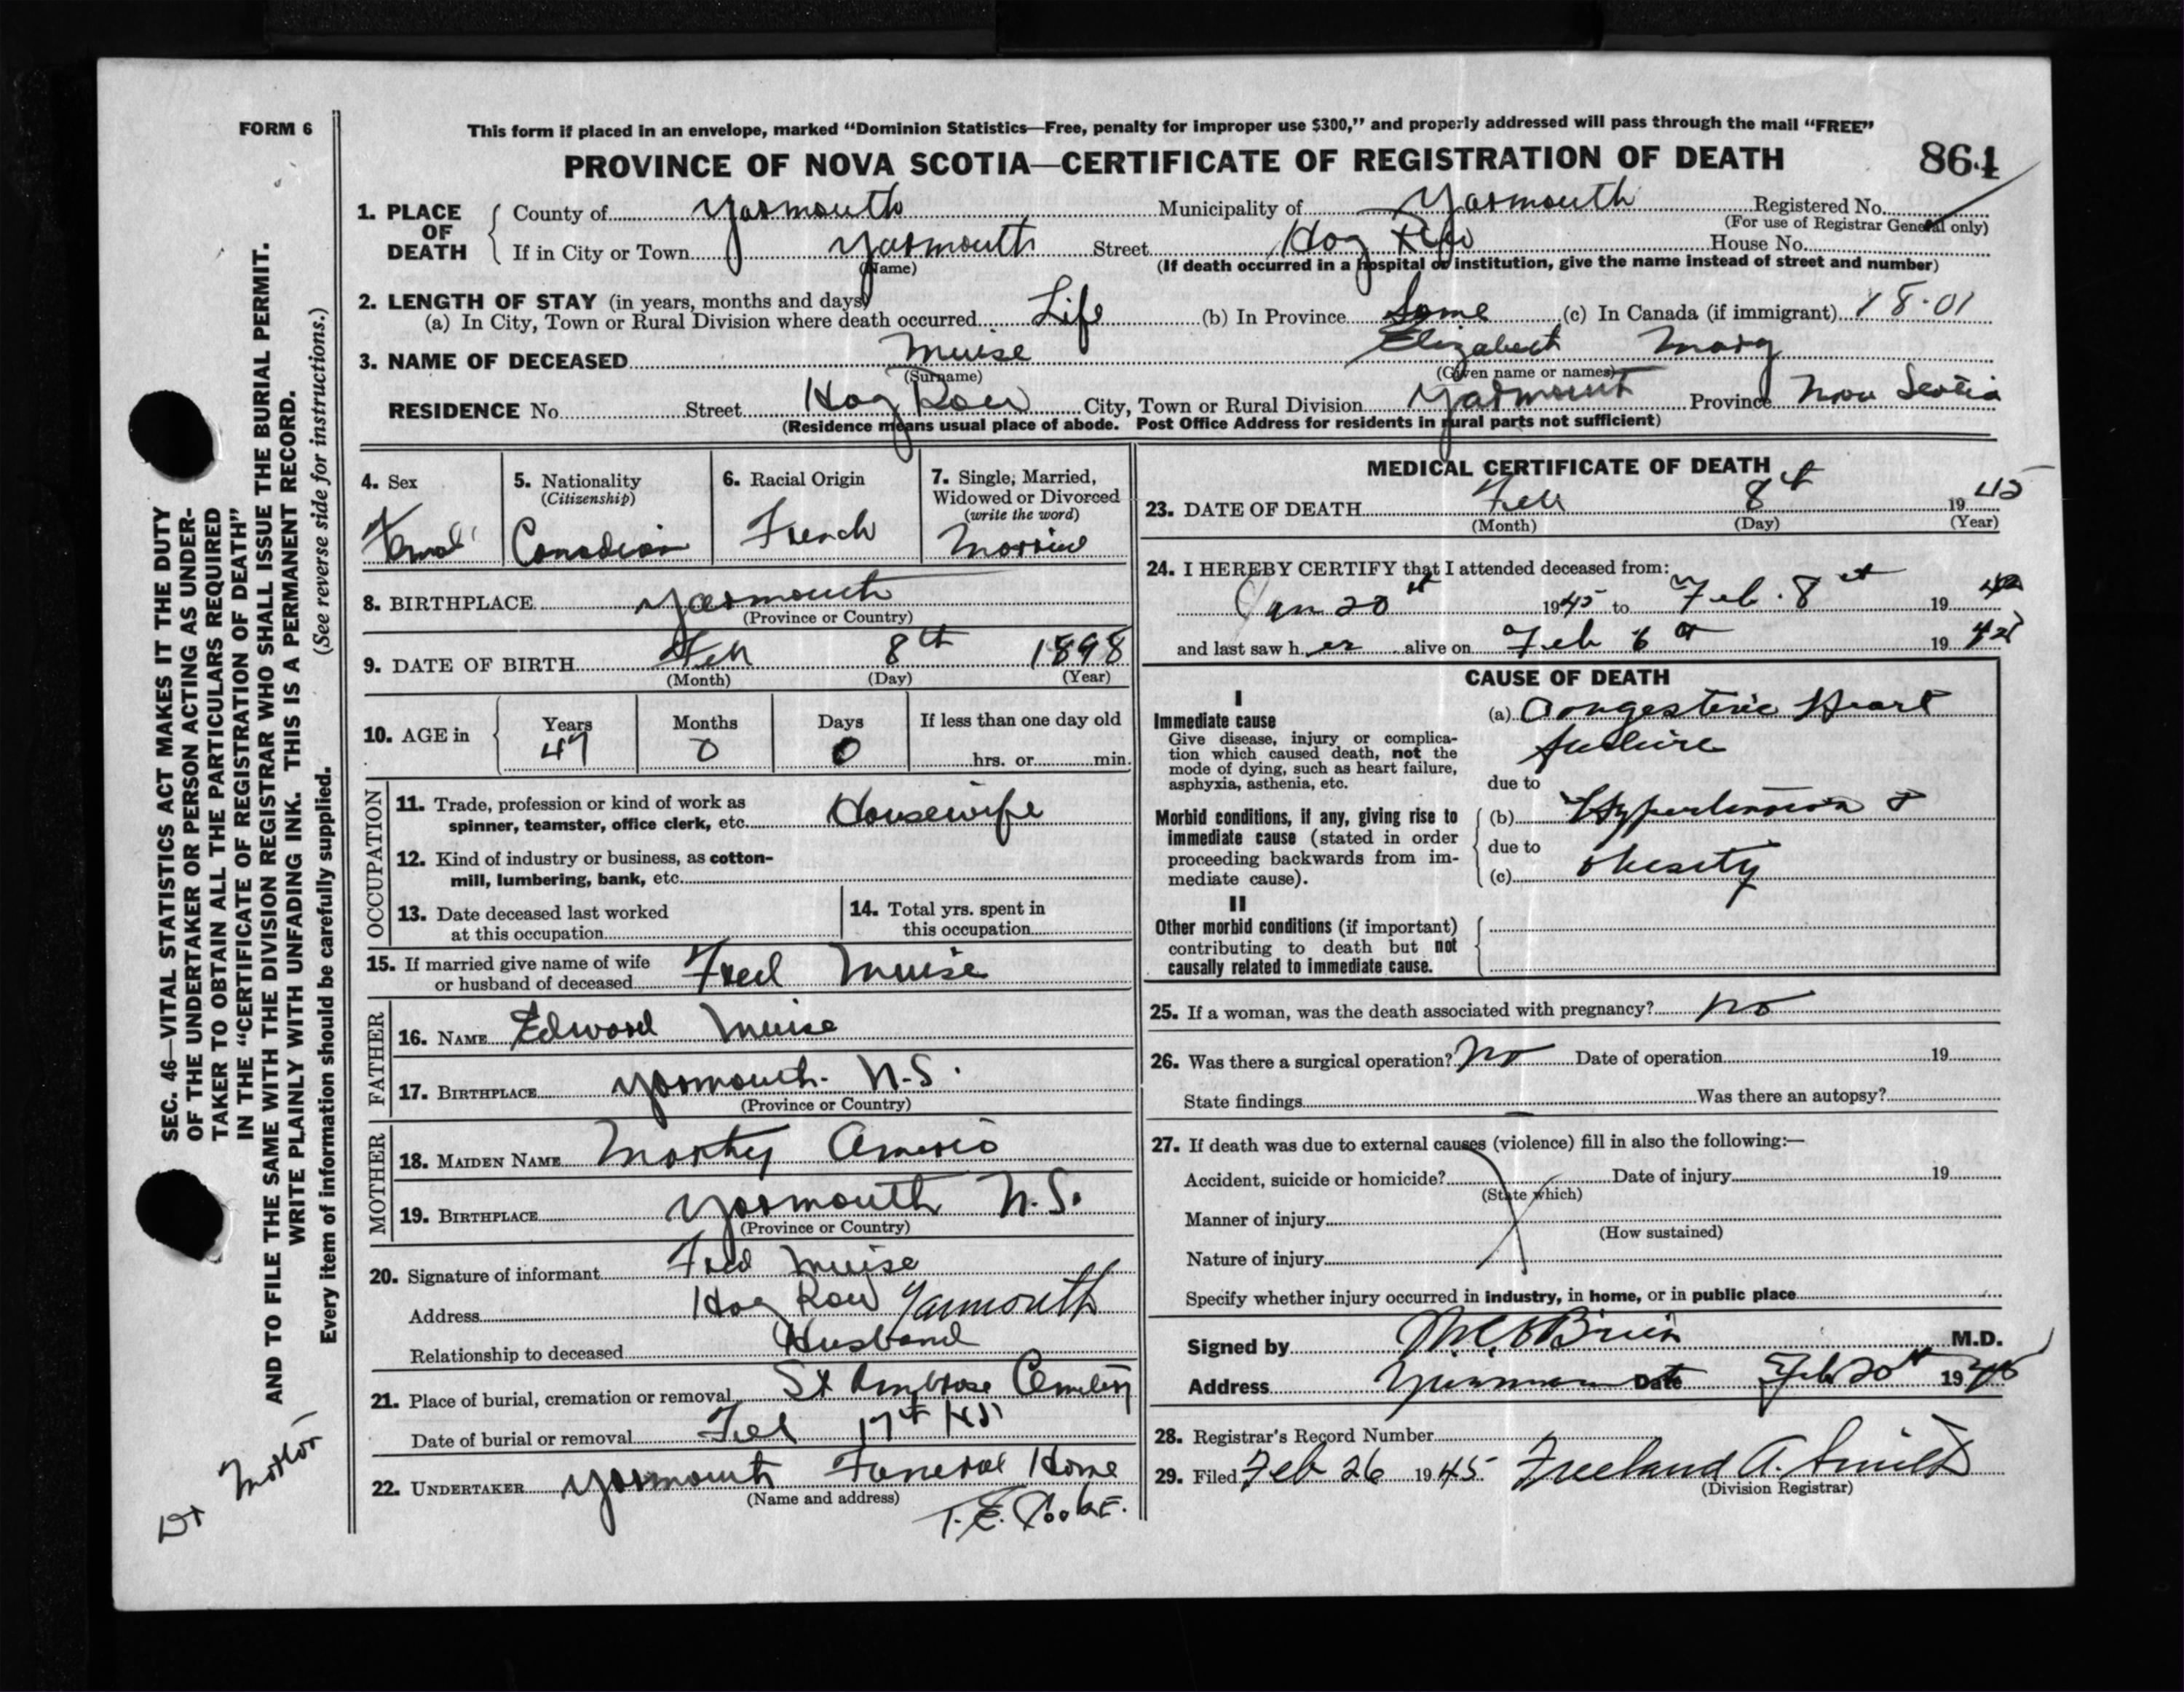 FORM 6
This form if placed in an envelope, marked "Dominion Statistics—Free, penalty for improper use $300," and properly addressed will pass through the mail "FREE"
PROVINCE OF NOVA SCOTIA—CERTIFICATE OF REGISTRATION OF DEATH
864
1. PLACE OF DEATH
County of Yarmouth Municipality of Yarmouth Registered No.
(For use of Registrar General only)
If in City or Town Yarmouth Street Hog House No.
(Name) (If death occurred in a hospital or institution, give the name instead of street and number)
2. LENGTH OF STAY (in years, months and days)
(a) In City, Town or Rural Division where death occurred Life (b) In Province Same (c) In Canada (if immigrant) 18-01
3. NAME OF DECEASED Muise Elizabeth Mary
(Surname) (Given name or names)
RESIDENCE No. Street Hog Row City, Town or Rural Division Yarmouth Province Nova Scotia
(Residence means usual place of abode. Post Office Address for residents in rural parts not sufficient)
4. Sex
Female
5. Nationality
(Citizenship)
Canadian
6. Racial Origin
French
7. Single, Married, Widowed or Divorced
(write the word)
Married
8. BIRTHPLACE Yarmouth
(Province or Country)
9. DATE OF BIRTH Feb 8th 1898
(Month) (Day) (Year)
10. AGE in
Years Months Days If less than one day old
47 0 0 hrs. or min.
OCCUPATION
11. Trade, profession or kind of work as
spinner, teamster, office clerk, etc. Housewife
12. Kind of industry or business, as cotton-
mill, lumbering, bank, etc.
13. Date deceased last worked
at this occupation
14. Total yrs. spent in
this occupation
15. If married give name of wife
or husband of deceased Fred Muise
FATHER
16. NAME Edward Muise
17. BIRTHPLACE Yarmouth. N.S.
(Province or Country)
MOTHER
18. MAIDEN NAME
19. BIRTHPLACE Yarmouth N.S.
(Province or Country)
20. Signature of informant Fred Muise
Address Hog Row Yarmouth
Relationship to deceased Husband
21. Place of burial, cremation or removal St Ambrose Cemetery
Date of burial or removal Feb
22. UNDERTAKER Yarmouth Funeral Home
(Name and address)
T. E. Cooke.
MEDICAL CERTIFICATE OF DEATH
23. DATE OF DEATH Feb 8th 1945
(Month) (Day) (Year)
24. I HEREBY CERTIFY that I attended deceased from:
Jan 20 1945 to Feb. 8 19
and last saw her alive on Feb 6 19
CAUSE OF DEATH
I
Immediate cause
Give disease, injury or complica-
tion which caused death, not the
mode of dying, such as heart failure,
asphyxia, asthenia, etc.
(a) Congestive Heart
failure
due to
Morbid conditions, if any, giving rise to
immediate cause (stated in order
proceeding backwards from im-
mediate cause).
(b) Hypertension &
due to
(c) obesity
II
Other morbid conditions (if important)
contributing to death but not
causally related to immediate cause.
25. If a woman, was the death associated with pregnancy? no
26. Was there a surgical operation? no Date of operation 19
State findings Was there an autopsy?
27. If death was due to external causes (violence) fill in also the following:—
Accident, suicide or homicide? Date of injury 19
(State which)
Manner of injury
(How sustained)
Nature of injury
Specify whether injury occurred in industry, in home, or in public place
Signed by O'Brien M.D.
Address Yarmouth Date Feb 20th 1945
28. Registrar's Record Number
29. Filed Feb 26 1945 Freeland A. Smith
(Division Registrar)
SEC. 46—VITAL STATISTICS ACT MAKES IT THE DUTY
OF THE UNDERTAKER OR PERSON ACTING AS UNDER-
TAKER TO OBTAIN ALL THE PARTICULARS REQUIRED
IN THE "CERTIFICATE OF REGISTRATION OF DEATH"
AND TO FILE THE SAME WITH THE DIVISION REGISTRAR WHO SHALL ISSUE THE BURIAL PERMIT.
WRITE PLAINLY WITH UNFADING INK. THIS IS A PERMANENT RECORD.
Every item of information should be carefully supplied. (See reverse side for instructions.)